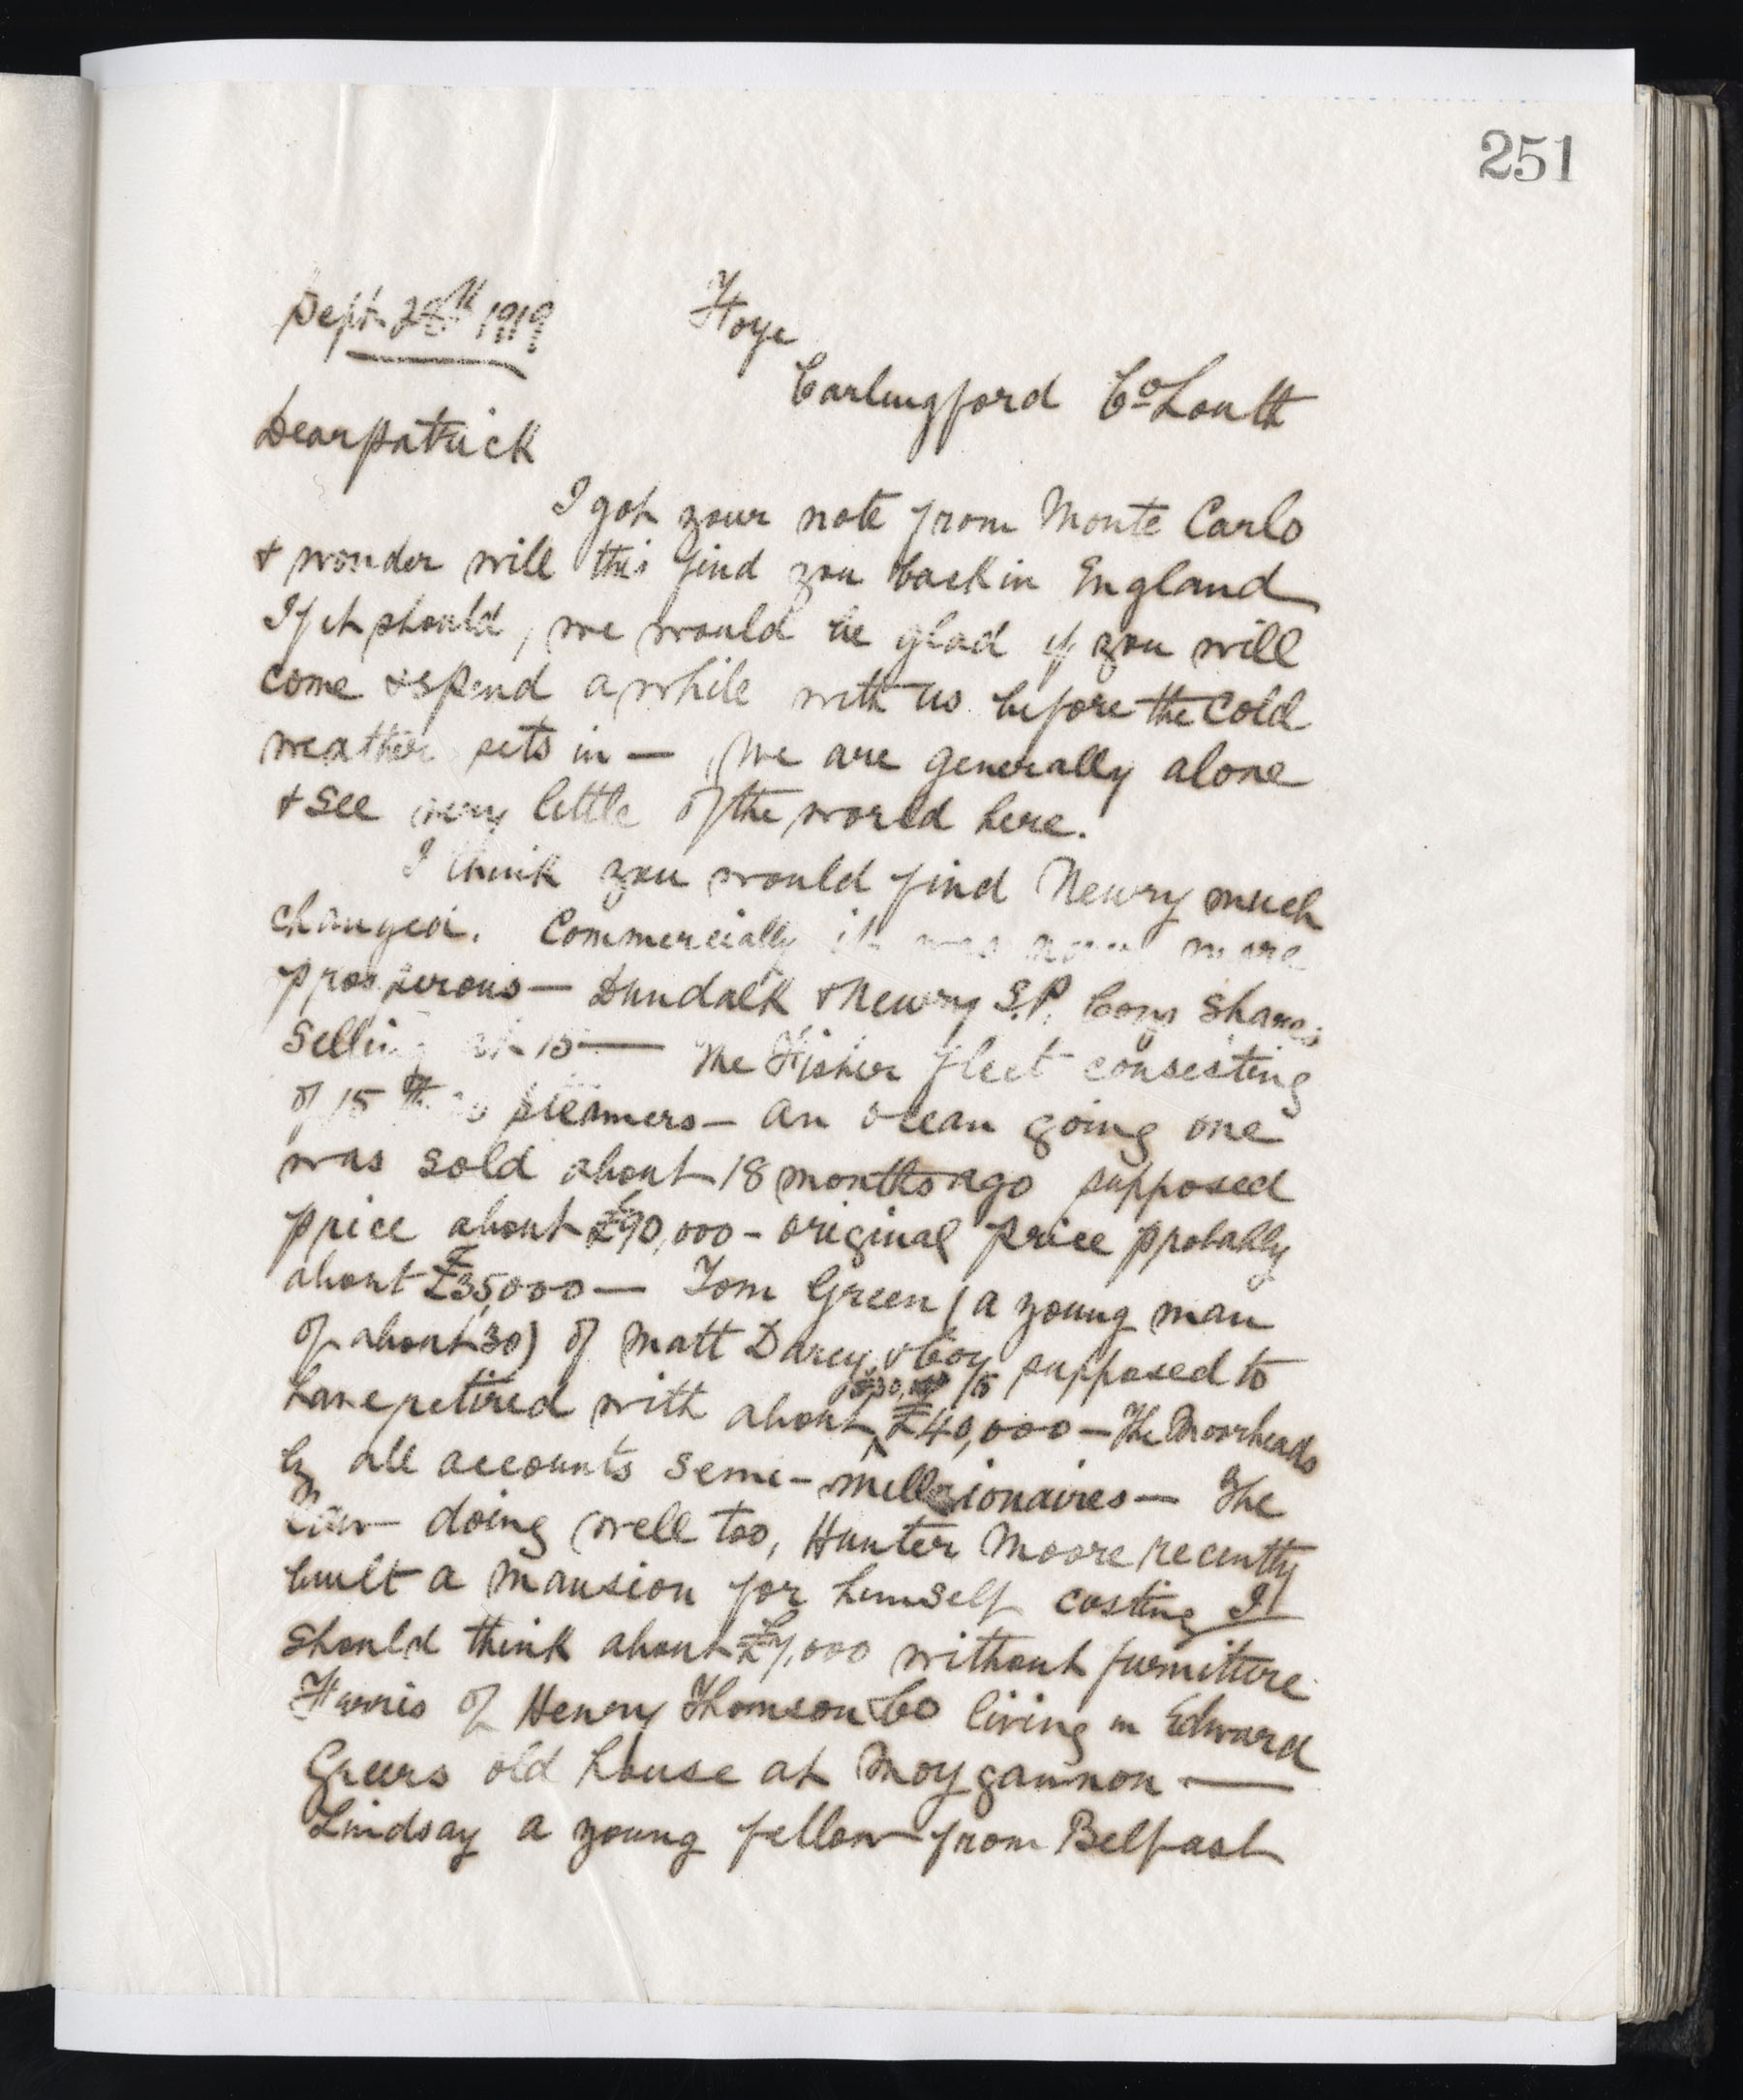 251
Sept 28th 1919 Foye
Carlingford Co Louth
Dear Patrick
I got your note from Monte Carlo
& wonder will this find you back in England
If it should, we would be glad if you will
come & spend a while with us before the cold
weather sets in — We are generally alone
& see very little of the world here.
I think you would find Newry much
changed. Commercially it was never more
prosperous — Dundalk & Newry S.P. Coys shares
selling at 15 — The Fisher fleet consisting
of 15 steamers — an ocean going one
was sold about 18 months ago supposed
price about £90,000 - original price probably
about £35,000 — Tom Green (a young man
of about 30) of Matt Darcy & Coy supposed to
£30,000 to
have retired with about £40,000 — The Moorheads
by all accounts semi-millionaires — The
Law doing well too, Hunter Moore recently
built a mansion for himself costing I
should think about £7,000 without furniture
Harris of Henry Thomson Co living in Edward
Greers old house at Moygannon —
Lindsay a young fellow from Belfast